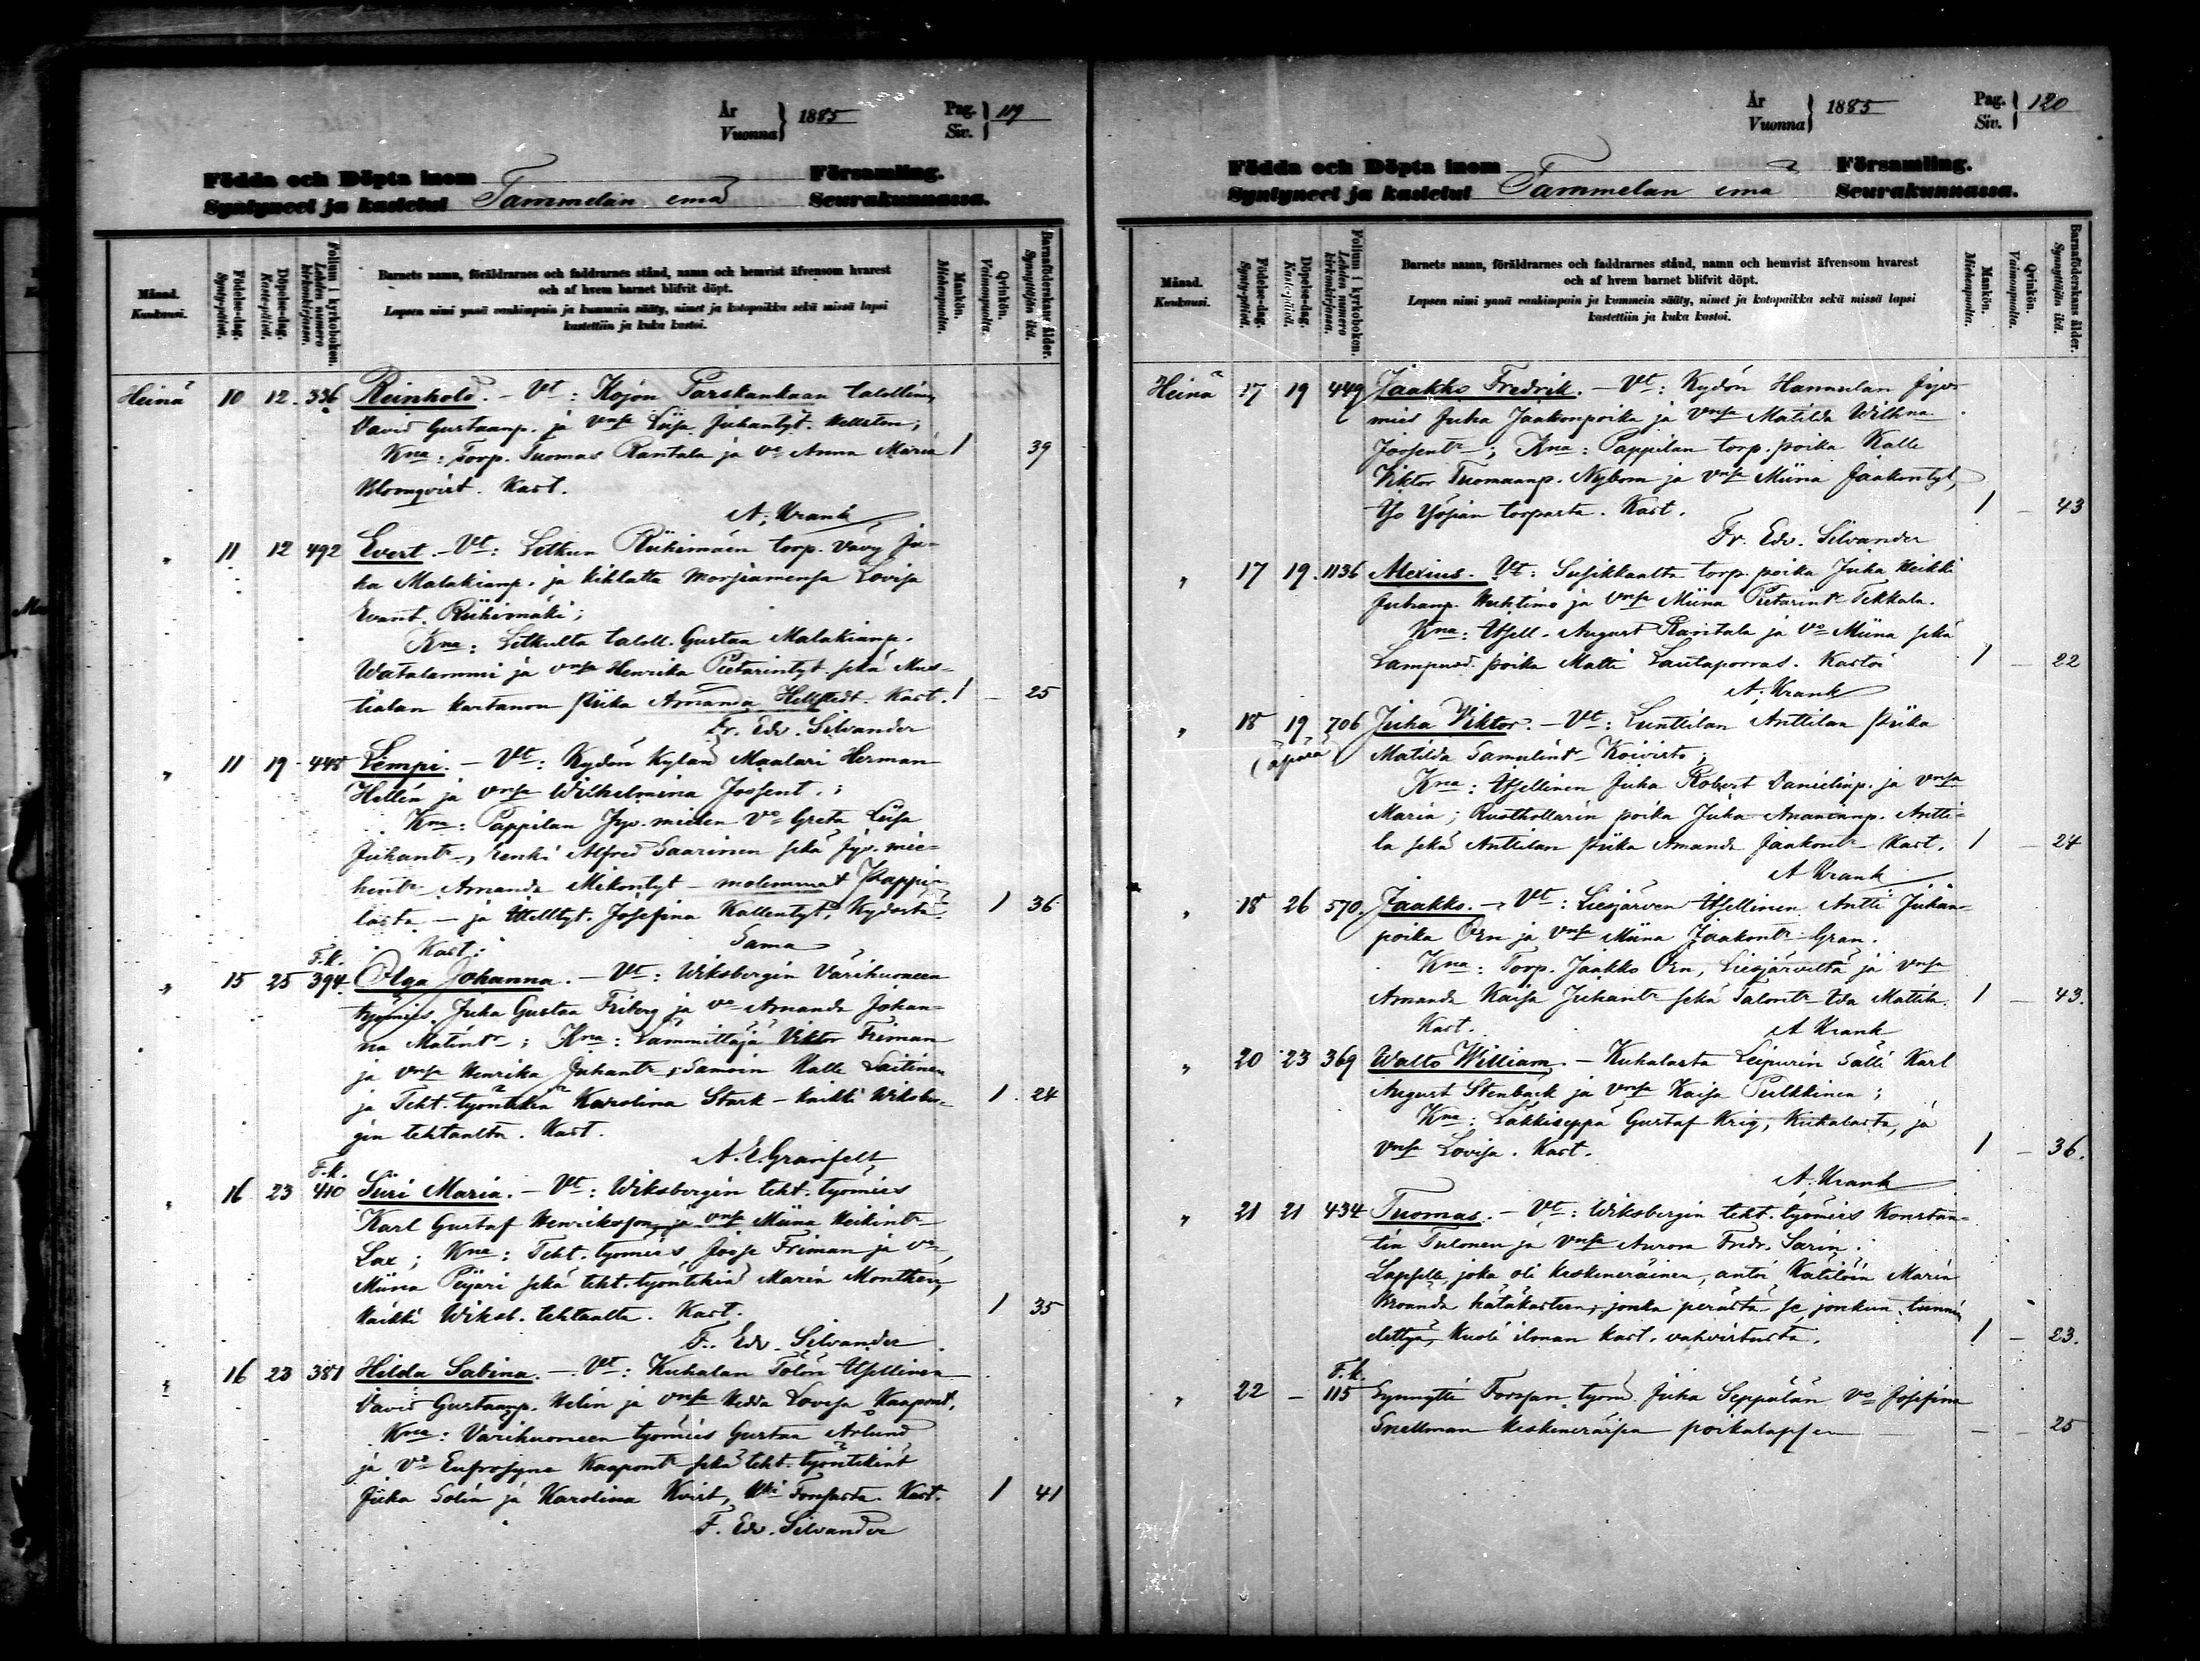 År
Vuonna } 1885 Pag.
Siv. } 119
Födda och Döpta inom
Syntyneet ja kastetut Tammelan emä Församling.
Seurakunnassa.
Månad.
Kuukausi.
Födelse-dag.
Synty-päivä.
Döpelse-dag.
Kaste-päivä.
Folium i kyrkoboken.
Lehden numero kirkonkirjassa.
Barnets namn, föräldrarnes och faddrarnes stånd, namn och hemvist äfvensom hvarest
och af hvem barnet blifvit döpt.
Lapsen nimi ynnä vanhimpain ja kummein sääty, nimet ja kotopaikka sekä missä lapsi
kastettiin ja kuka kastoi.
Mankön.
Miehenpuolta.
Qvinkön.
Vaimonpuolta.
Barnaföderskans ålder.
Synnyttäjän ikä.
Heinä 10 12. 336 Reinhold. – Vt: Kojon Parskankaan talollinen
David Gustaanp. ja vnsa Liisa Juhantyt. Hellsten;
Kna: Torp. Tuomas Rantala ja vo Anna Maria 1 39
Blomqvist. Kast.
A. Krank
" 11 12 492 Evert. – Vt: Letkun Riihimäen torp. vävy Ju-
ha Malakianp. ja kihlattu morsiamensa Lovisa
Evant. Riihimäki;
Kna: Letkulta taloll. Gustaa Malakianp.
Watalammi ja vnsa Henrika Pietarintyt. sekä Mus-
tialan kartanon piika Amanda Hellstedt. Kast. 1 – 25
Fr. Edv. Silvander
" 11 19 448 Lempi. – Vt: Kydön kylän Maalari Herman
Hellén ja vnsa Wilhelmina Joosent.;
Kna: Pappilan Jyv. miehen vo Greta Liisa
Juhantr, renki Alfred Saarinen sekä jyv. mie-
hentr Amanda Mikontyt – molemmat Pappi-
lasta – ja Itselltyt. Josefina Kallentyt, Kydostä. 1 36
Kast: Sama
" 15 25 F.k. 394. Olga Johanna. – Vt: Wiksbergin Värihuoneen
työmies Juha Gustaa Friberg ja vo Amanda Johan-
na Matintr; Kna: Lämmittäjä Viktor Friman
ja vnsa Henrika Juhantr, Samoin Kalle Laitinen
ja Teht. työntekiä Karolina Stark – kaikki Wiksber- 1. 24
gin tehtaalta. Kast.
A. E. Granfelt
" 16 23 F.k. 410 Siiri Maria. – Vt: Wiksbergin teht. työmies
Karl Gustaf Henriksson ja vnsa Miina Heikintr
Lax; Kna: Teht. työmies Joose Friman ja vo
Miina Peijari sekä teht. työntekiä Maria Montken,
kaikki Wiksb. tehtaalta. Kast. 1 35
F. Edv. Silvander
" 16 23 381 Hilda Sabina. – Vt: Kuhalan Tolon Itsellinen
David Gustaanp. Helin ja vnsa Hedda Lovisa Kaapont.
Kna: Värihuoneen työmies Gustaa Arlund
ja vo Eufrosyne Kaapontr sekä teht. työntekiät
Juha Solin ja Karolina Kvist, kki Forssasta. Kast. 1 41
F. Edv. Silvander
År
Vuonna } 1885 Pag.
Siv. } 120
Födda och Döpta inom
Syntyneet ja kastetut Tammelan emä Församling.
Seurakunnassa.
Månad.
Kuukausi.
Födelse-dag.
Synty-päivä.
Döpelse-dag.
Kaste-päivä.
Folium i kyrkoboken.
Lehden numero kirkonkirjassa.
Barnets namn, föräldrarnes och faddrarnes stånd, namn och hemvist äfvensom hvarest
och af hvem barnet blifvit döpt.
Lapsen nimi ynnä vanhimpain ja kummein sääty, nimet ja kotopaikka sekä missä lapsi
kastettiin ja kuka kastoi.
Mankön.
Miehenpuolta.
Qvinkön.
Vaimonpuolta.
Barnaföderskans ålder.
Synnyttäjän ikä.
Heinä 17 19 449 Jaakko Fredrik. – Vt: Kydön Hannulan Jyv-
mies Juha Jaakonpoika ja vnsa Matilda Wilhna
Joosentr; Kna: Pappilan torp. poika Kalle
Viktor Tuomaanp. Nybom ja vnsa Miina Jaakontyt,
torpasta. Kast. 1 – 43
Fr. Edv. Silvander
" 17 19. 1136 Alexius. Vt: Susikkaalta torp. poika Juha Heikki
Juhanp. Huhtimo ja vnsa Miina Pietarintr Tekkala.
Kna: Itsell. August Rantala ja vo Miina sekä
Lampuod. poika Matti Lautaporras. Kastoi 1 – 22
A. Krank
" 18 19 706 Juha Viktor. – Vt: Lunttilan Anttilan piika
(äpärä) Matilda Samulint. Koivisto;
Kna: Itsellinen Juha Robert Danielinp. ja vnsa
Maria; Rusthollarin poika Juha Ananianp. Antti-
la sekä Anttilan piika Amanda Jaakontr Kast. 1 – 24
A Krank
" 18 26 570. Jaakko. – Vt: Liesjärven Itsellinen Antti Juhan-
poika Orn ja vnsa Miina Jaakontr Gran.
Kna: Torp. Jaakko Orn, Liesjärveltä ja vnsa
Amanda Kaisa Juhantr sekä Talontr Ida Mattila. 1 – 43.
Kast. A Krank
" 20 23 369 Walto William – Kuhalasta Leipurin Sälli Karl
August Stenbäck ja vnsa Kaisa Pulkkinen;
Kna: Läkkiseppä Gustaf Krig, Kuhalasta, ja
vnsa Lovisa. Kast. 1 – 36.
A. Krank
" 21 21 434 Tuomas. – Vt: Wiksbergin teht. työmies Konstan-
tin Tulonen ja vnsa Aurora Fredr. Sarin.
Lapselle, joka oli keskeneräinen, antoi Kätilöin Maria
Branda hätäkasteen, jonka perästä se jonkun tunnin
elettyä, kuoli ilman kast. vahvistusta. 1 – 23.
" 22 – F.k. 115 Synnytti Forssan työm. Juha Seppälän vo Josefina
Snellman keskeneräisen poikalapsen – – 25